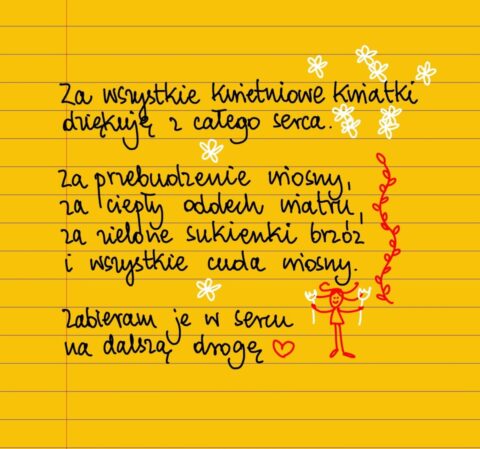 Za wszystkie kwietniowe kwiatki
dziękuję z całego serca.
Za przebudzenie wiosny,
za ciepły oddech wiatru,
za zielone sukienki brzóz
i wszystkie cuda wiosny.
Zabieram je w sercu
na dalszą drogę